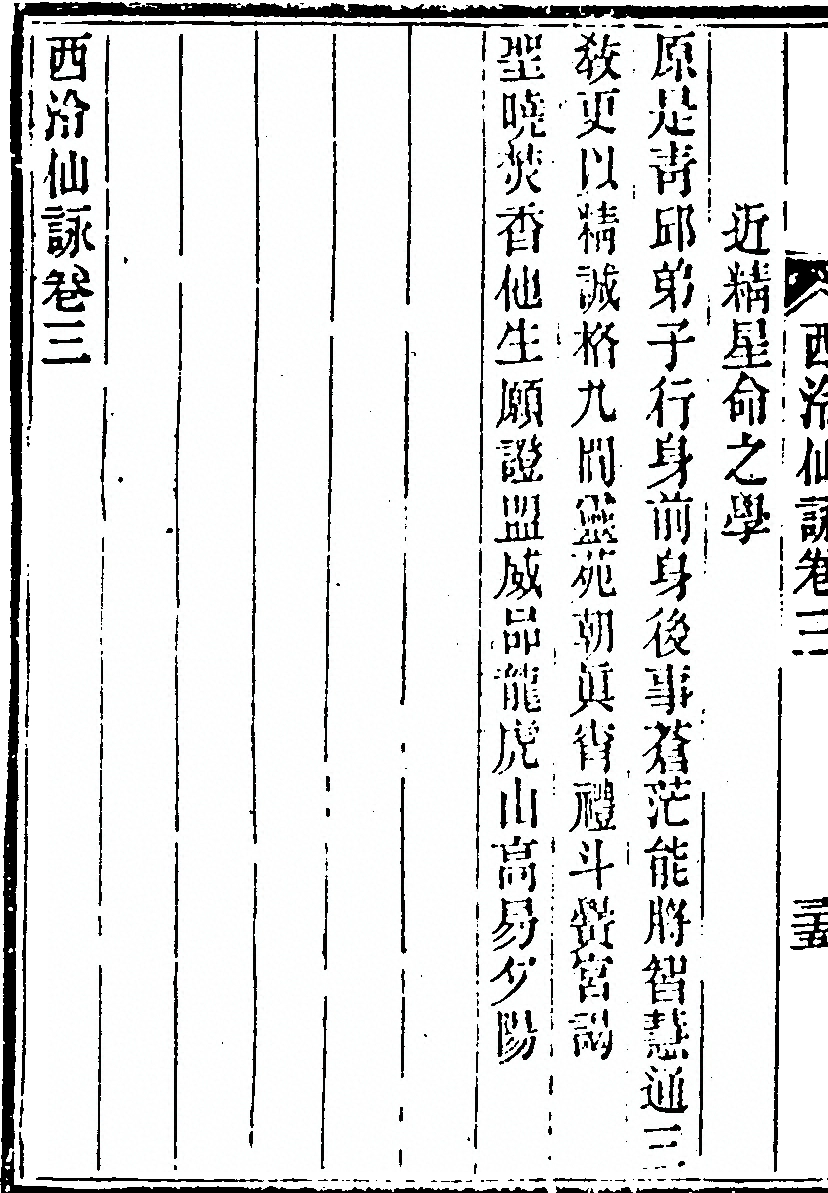 西泠仙詠卷三
三五
近精星命之學
原是青邱弟子行身前身後事蒼茫能將智慧通三
教更以精誠格九閶靈苑朝眞宵禮斗黌宮謁
聖曉焚香他生願證盟威品龍虎山高易夕陽
西泠仙詠卷三